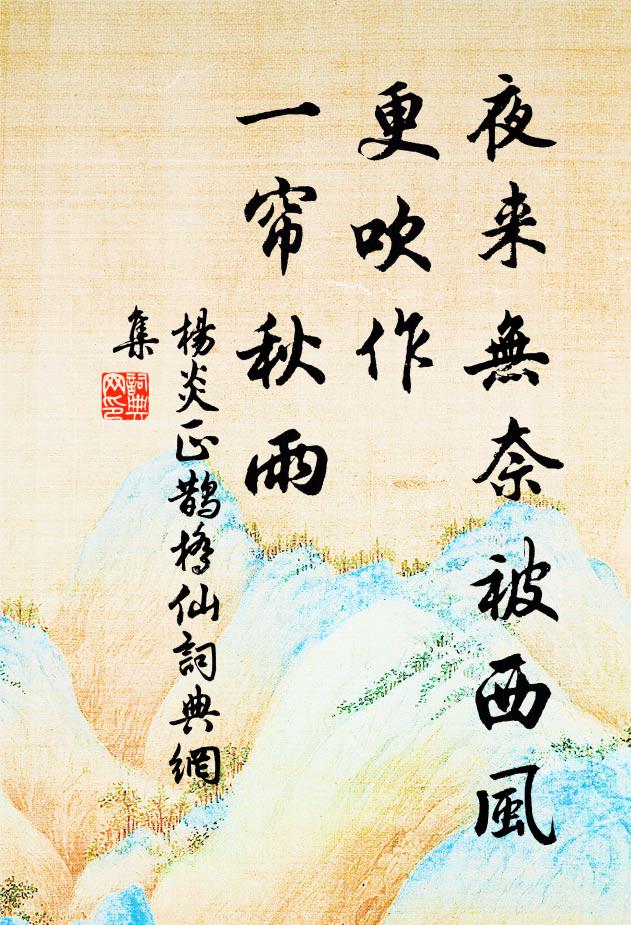 夜来無奈被西風
更吹作
一帘秋雨
楊炎正鵲橋仙詞典網
集
詞典
网印